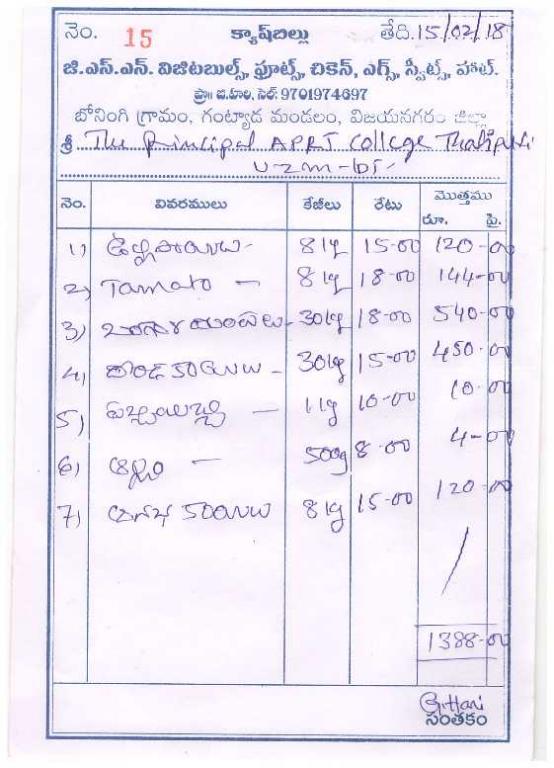 నెం. 15 క్యాష్‌బిల్లు తేది.15/02/18
జి.ఎస్.ఎన్. విజిటబుల్స్, ఫ్రూట్స్, చికెన్, ఎగ్స్, స్వీట్స్, హాట్.
సెల్: 9701974697
బోనంగి గ్రామం, గంట్యాడ మండలం, విజయనగరం జిల్లా
శ్రీ The Principal APRJ College Thatipudi
VZM-Dt-
నెం. వివరములు కేజీలు రేటు మొత్తము
రూ. పై.
1) ఉల్లిపాయలు- 8 kg 15-00 120-00
2) Tamato - 8 kg 18-00 144-00
3) - 30kg 18-00 540-00
4) దొండకాయలు - 30kg 15-00 450-00
5) పచ్చిమిర్చి - 1 kg 10-00 10-00
6) అల్లం - 500g 8-00 4-00
7) ఆనపకాయలు 8 kg 15-00 120-00
1388-00
G.Hari
సంతకం